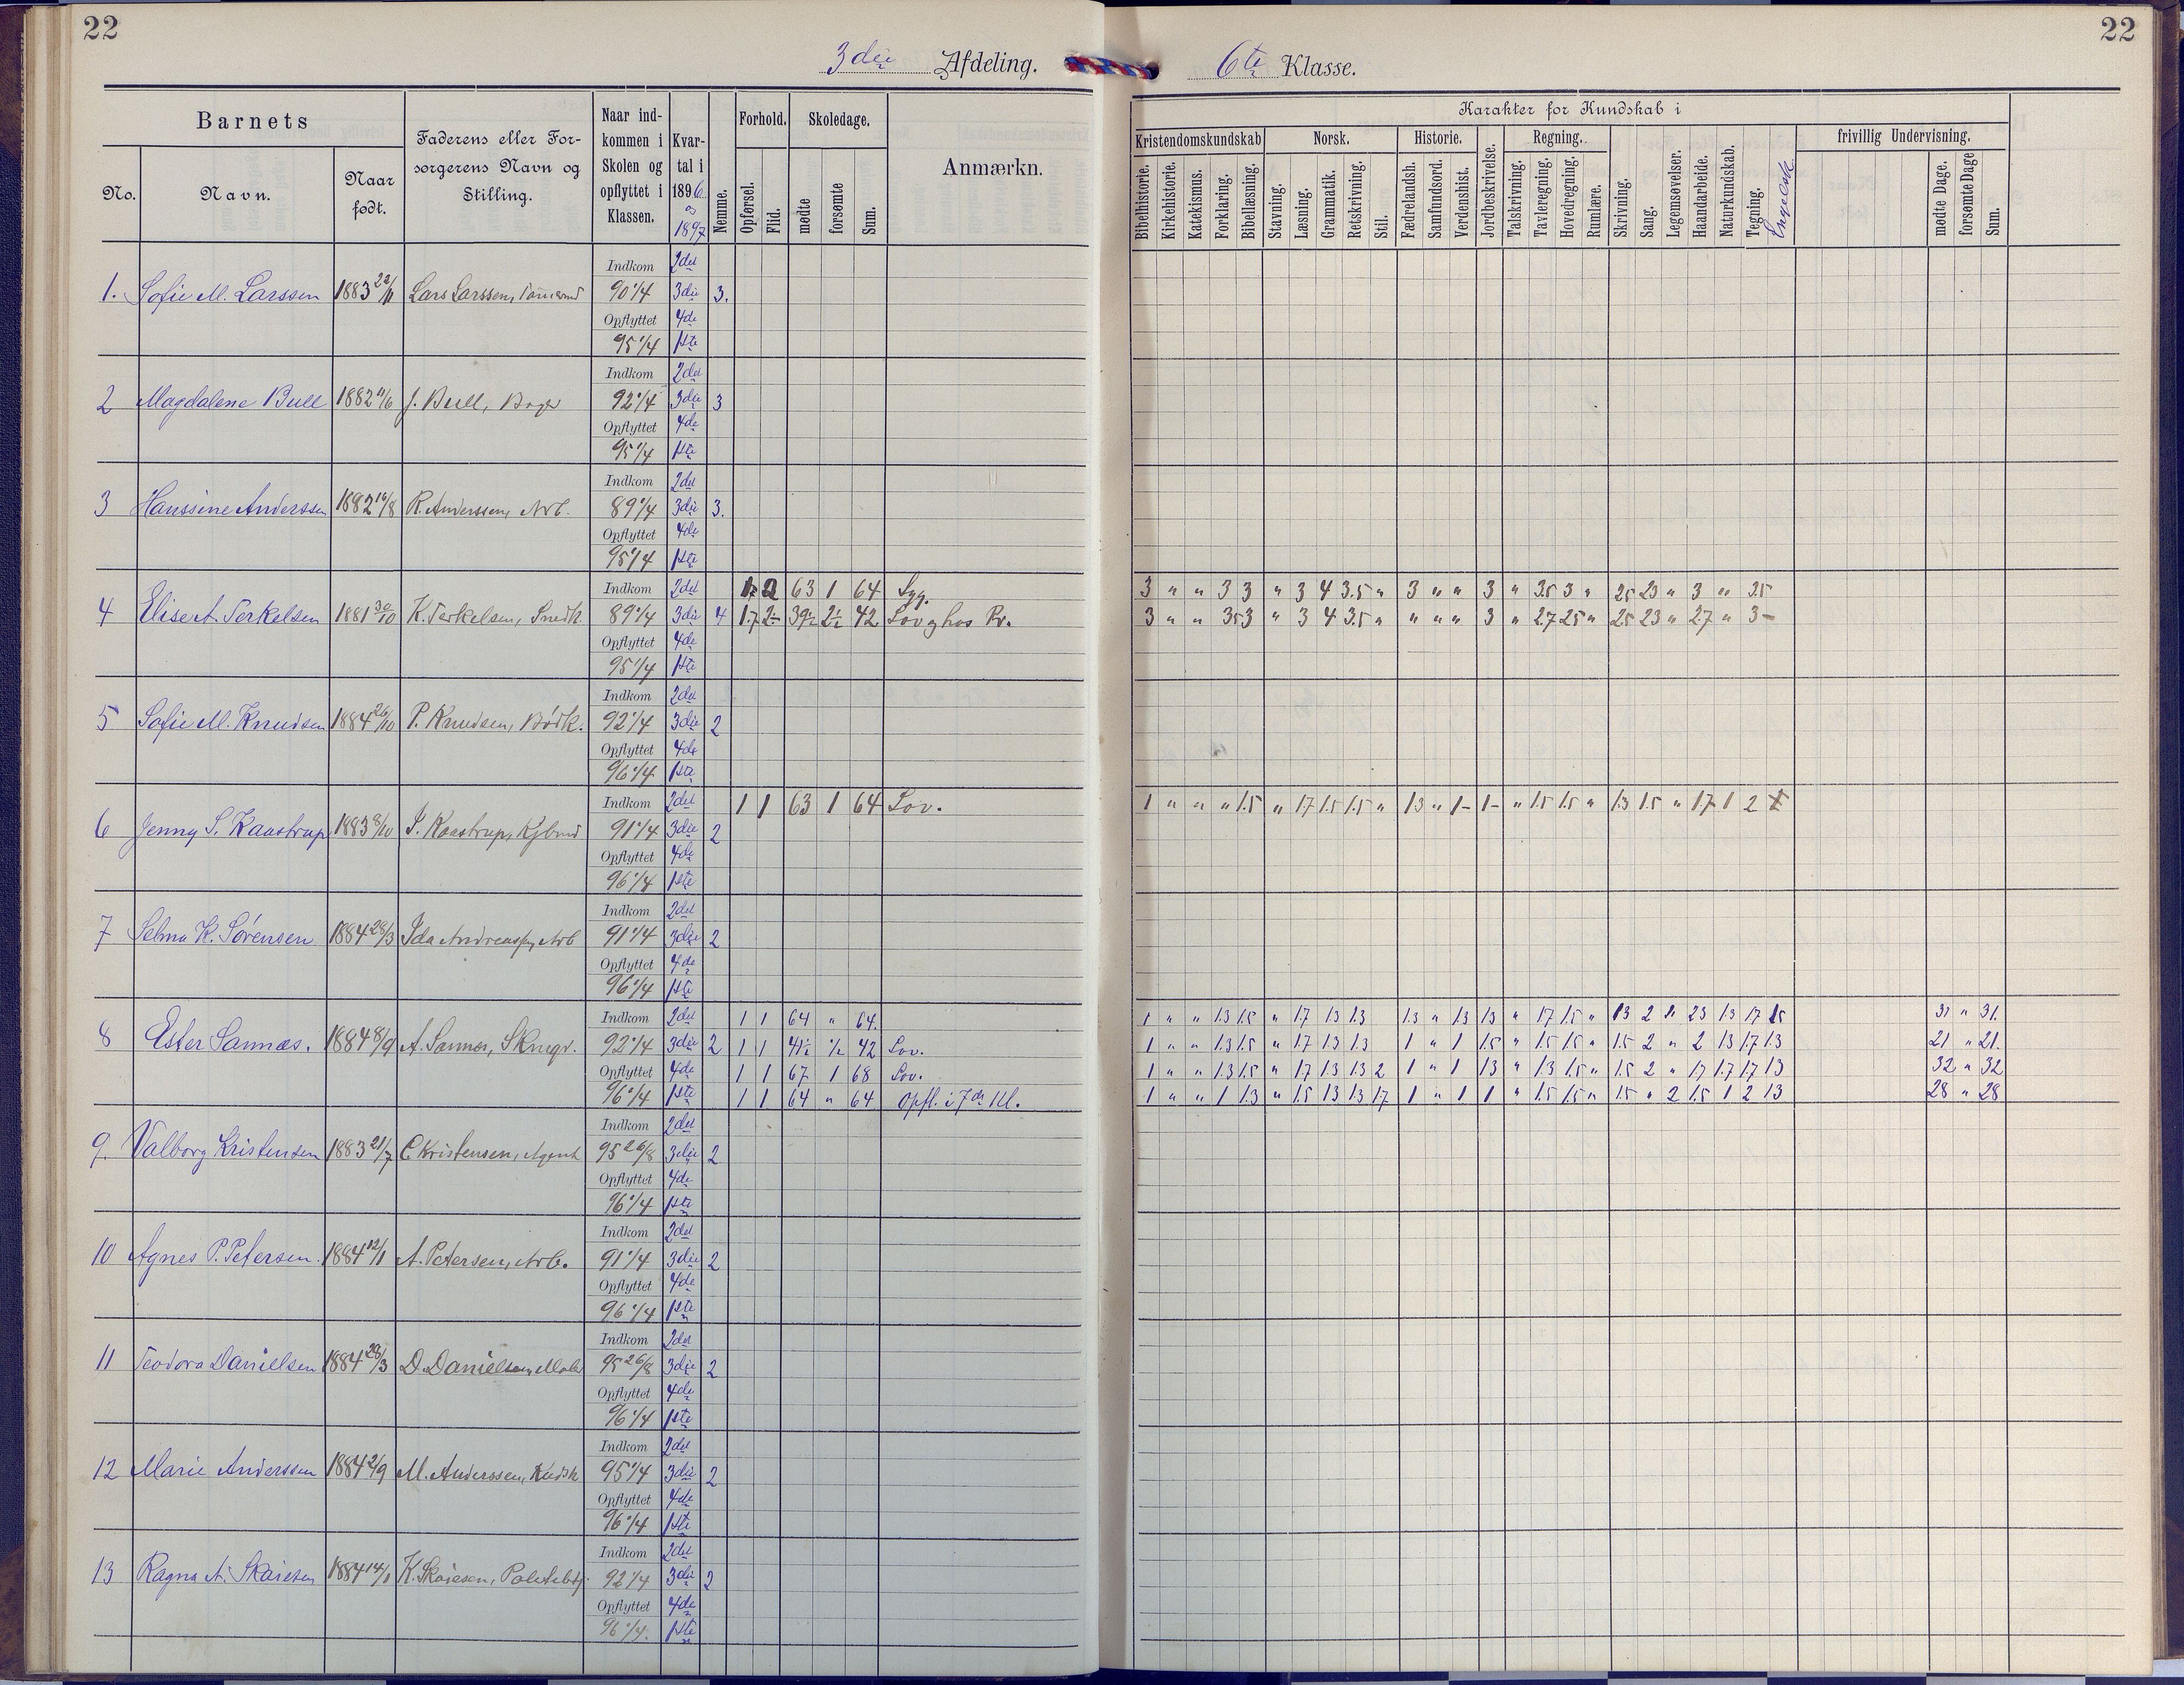 22
22
3die Afdeling.
6te Klasse.
Barnets
No.
Navn.
Naar født.
Faderens eller Forsorgerens Navn og Stilling.
Naar indkommen i Skolen og opflyttet i Klassen.
Kvartal i 1896 og 1897
Nemme.
Forhold.
Opførsel.
Flid.
Skoledage.
mødte
forsømte
Sum.
Anmærkn.
Karakter for Kundskab i
Kristendomskundskab
Norsk.
Historie.
Regning.
frivillig Undervisning.
Bibelhistorie.
Kirkehistorie.
Katekismus.
Forklaring.
Bibellæsning.
Stavning.
Læsning.
Grammatik.
Retskrivning.
Stil.
Fædrelandsh.
Samfundsord.
Verdenshist.
Jordbeskrivelse.
Talskrivning.
Tavleregning.
Hovedregning.
Rumlære.
Skrivning.
Sang.
Legemsøvelser.
Haandarbeide.
Naturkundskab.
Tegning.
Engelsk
mødte Dage.
forsømte Dage
Sum.
Indkom 2det
1. Sofie M. Larssen 1883 22/11 Lars Larssen, 90 1/4 3die 3.
Opflyttet 4de
95 1/4 1ste
Indkom 2det
2 Magdalene Bull 1882 11/6 J. Bull, Bager 92 1/4 3die 3
Opflyttet 4de
95 1/4 1ste
Indkom 2det
3 Hanssine Anderssen 1882 16/8 R. Anderssen, Arb. 89 1/4 3die 3.
Opflyttet 4de
95 1/4 1ste
Indkom 2det 2 63 1 64 Syg. 3 " " 3 3 " 3 4 3.5 " 3 " " 3 " 3.5 3 " 2.5 2.3 " 3 " 3.5
4 Elise A. Terkelsen 1881 30/10 K. Terkelsen, Snedk. 89 1/4 3die 4 1.7 2- 39½ 2½ 42 Lov og hos Pr. 3 " " 3.5 3 " 3 4 3.5 " " " " 3 " 2.7 2.5 " 2.5 2.3 " 2.7 " 3-
Opflyttet 4de
95 1/4 1ste
Indkom 2det
5 Sofie M. Knudsen 1884 26/10 P. Knudsen, Bødk. 92 1/4 3die 2
Opflyttet 4de
96 1/4 1ste
Indkom 2det 1 1 63 1 64 Lov. 1 " " " 1.5 " 1.7 1.5 1.5 " 1.3 " 1- 1- " 1.5 1.5 " 1.3 1.5 " 1.7 1 2
6 Jenny S. Kaastrup 1883 8/10 S. Kaastrup, Kjbmd 91 1/4 3die 2
Opflyttet 4de
96 1/4 1ste
Indkom 2det
7 Selma K. Sørensen 1884 28/3 Ida Andreassen, Arb 91 1/4 3die 2
Opflyttet 4de
96 1/4 1ste
Indkom 2det 1 1 64 " 64. 1 " " 1.3 1.5 " 1.7 1.3 1.3 1.3 " 1.3 1.3 " 1.7 1.5 " 1.3 2 " 2.3 1.3 1.7 1.5 31 " 31.
8 Ester Sannæs. 1884 8/9 A. Sannæs, 92 1/4 3die 2 1 1 41½ ½ 42 Lov. 1 " " 1.3 1.5 " 1.7 1.3 1.3 1 " 1 1.5 " 1.5 1.5 " 1.5 2 " 2 1.3 1.7 1.3 21 " 21.
Opflyttet 4de 1 1 67 1 68 Lov. 1 " " 1.3 1.5 " 1.7 1.3 1.3 2 1 " 1 1.3 " 1.3 1.5 " 1.5 2 " 1.7 1.7 1.7 1.3 32 " 32
96 1/4 1ste 1 1 64 " 64 Opfl. i 7de Kl. 1 " " 1 1.3 " 1.5 1.3 1.3 1.7 1 " 1 1 " 1.5 1.5 " 1.5 " 2 1.5 1 2 1.3 28 " 28
Indkom 2det
9. Valborg Kristensen 1883 21/7 C. Kristensen, Agent 95 26/8 3die 2
Opflyttet 4de
96 1/4 1ste
Indkom 2det
10 Agnes P. Petersen. 1884 12/1 A. Petersen, Arb. 91 1/4 3die 2
Opflyttet 4de
96 1/4 1ste
Indkom 2det
11 Teodora Danielsen 1884 28/3 D. Danielsen, Maler 95 26/8 3die 2
Opflyttet 4de
96 1/4 1ste
Indkom 2det
12 Marie Anderssen 1884 2/9 M. Anderssen, Kudsk 95 1/4 3die 2
Opflyttet 4de
96 1/4 1ste
Indkom 2det
13 Ragna A. Skaiesen 1884 14/1 K. Skaiesen, Politibtj. 92 1/4 3die 2
Opflyttet 4de
96 1/4. 1ste